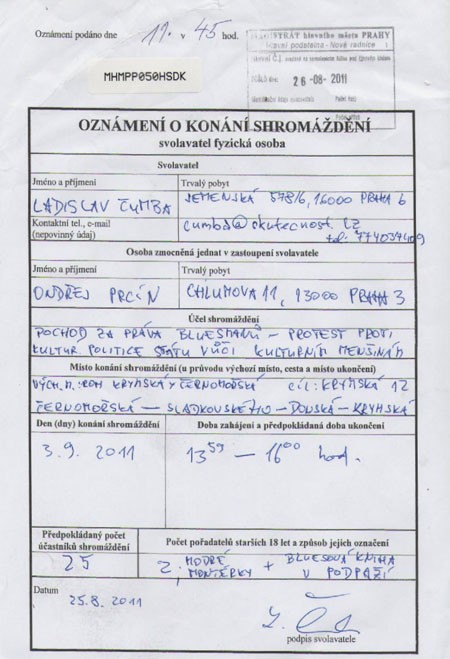 Oznámení podáno dne 11. v 45 hod.
MAGISTRÁT hlavního města PRAHY
Hlavní podatelna - Nové radnice 1
26-08-2011
MHMPP050HSDK
OZNÁMENÍ O KONÁNÍ SHROMÁŽDĚNÍ
svolavatel fyzická osoba
Svolavatel
Jméno a příjmení
Trvalý pobyt
LADISLAV ČUMBA
JEMENSKÁ 578/6, 16000 PRAHA 6
Kontaktní tel., e-mail
(nepovinný údaj)
cumba@skutecnost.cz
tel: 774037409
Osoba zmocněná jednat v zastoupení svolavatele
Jméno a příjmení
Trvalý pobyt
ONDŘEJ
CHLUMOVA 11, 13000 PRAHA 3
Účel shromáždění
POCHOD ZA PRÁVA BLUESMANŮ – PROTEST PROTI
KULTUR. POLITICE STÁTU VŮČI KULTURNÍM MENŠINÁM
Místo konání shromáždění (u průvodu výchozí místo, cesta a místo ukončení)
VÝCH. M.: ROH KRYMSKÁ X ČERNOMOŘSKÁ CÍL: KRYMSKÁ 12
ČERNOMOŘSKÁ – SLADKOVSKÉHO – DONSKÁ – KRYMSKÁ
Den (dny) konání shromáždění
Doba zahájení a předpokládaná doba ukončení
3. 9. 2011
13 59 – 16 00 hod.
Předpokládaný počet
účastníků shromáždění
Počet pořadatelů starších 18 let a způsob jejich označení
25
2; MODRÉ MONTÉRKY + BLUESOVÁ KNIHA V PODPAŽÍ
Datum
25.8. 2011
podpis svolavatele